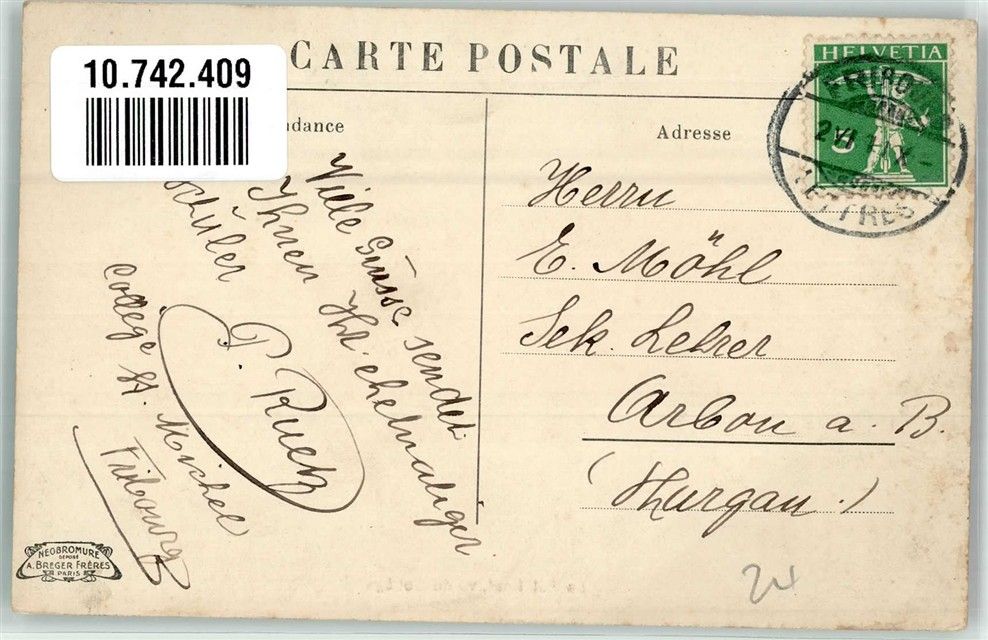 10.742.409
CARTE POSTALE
Adresse
HELVETIA
5
Viele Grüsse sendet
Ihnen Ihr. ehemaliger
Schüler
P. Ruetz
College St. Michel
Fribourg
Herrn
E. Möhl
Sek. Lehrer
Arbon a. B.
(Thurgau.)
NEOBROMURE
DÉPOSÉ
A. BREGER FRÈRES
PARIS
24